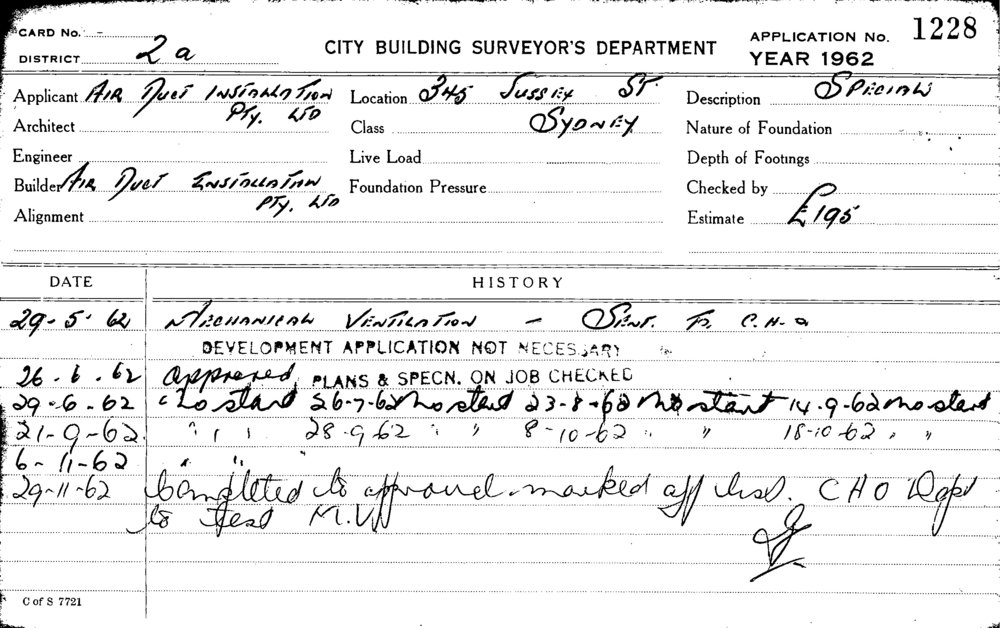 CARD No. -
DISTRICT 2a
CITY BUILDING SURVEYOR'S DEPARTMENT
APPLICATION No. 1228
YEAR 1962
Applicant AIR DUCT INSTALLATION PTY. LTD
Architect
Engineer
Builder AIR DUCT INSTALLATION PTY. LTD
Alignment
Location 345 SUSSEX ST.
Class SYDNEY
Live Load
Foundation Pressure
Description SPECIAL
Nature of Foundation
Depth of Footings
Checked by
Estimate £195
DATE HISTORY
29-5-62 MECHANICAL VENTILATION - SENT. TO C.H.O
DEVELOPMENT APPLICATION NOT NECESSARY
26.6.62 approved PLANS & SPECN. ON JOB CHECKED
29-6-62 No start 26-7-62 no start 23-8-62 no start 14.9-62 no start
21-9-62. " " 28.9.62 " " 8-10-62 " " 18-10-62 " "
6-11-62 " "
29-11-62 Completed to approval. marked off list. CHO Dept
to test M.V.
C of S 7721